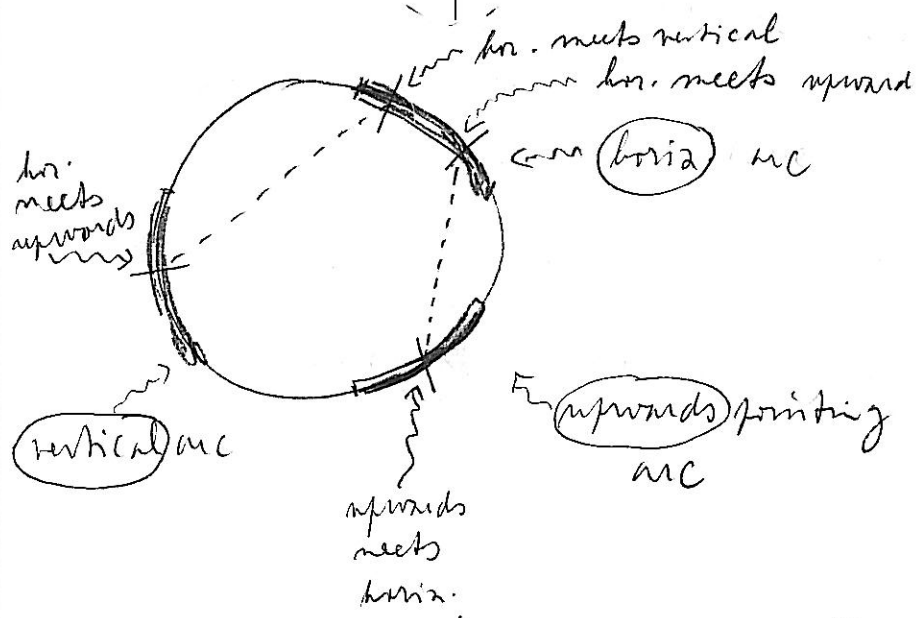 hor. meets vertical
hor. meets upward
horiz arc
hor.
meets
upwards
vertical arc
upwards pointing
arc
upwards
meets
horiz.